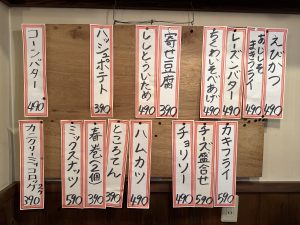 えびかつ 490
あじしそまきフライ 490
レーズンバター 490
ちくわいそべあげ 490
寄せ豆腐 390
ししとういため 390
ハッシュポテト 390
コーンバター 490
カキフライ 590
チーズ盛合せ 590
チョリソー 490
ハムカツ 490
ところてん 390
春巻(1個) 390
ミックスナッツ 590
カニクリーミーコロッケ 390